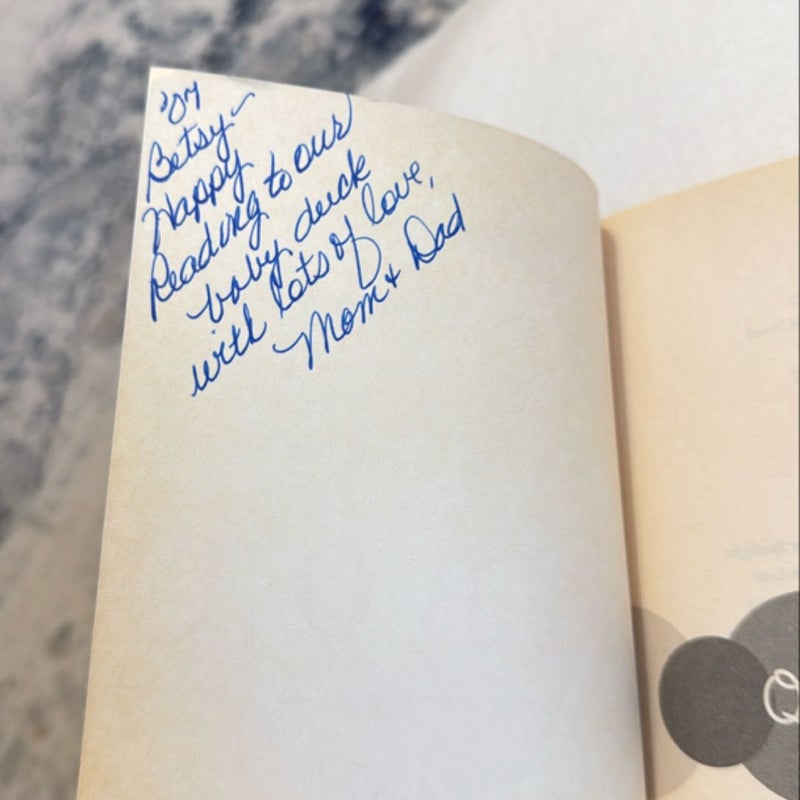 '07
Betsy-
Happy
Reading to our
baby duck
with lots of love,
Mom & Dad
Q